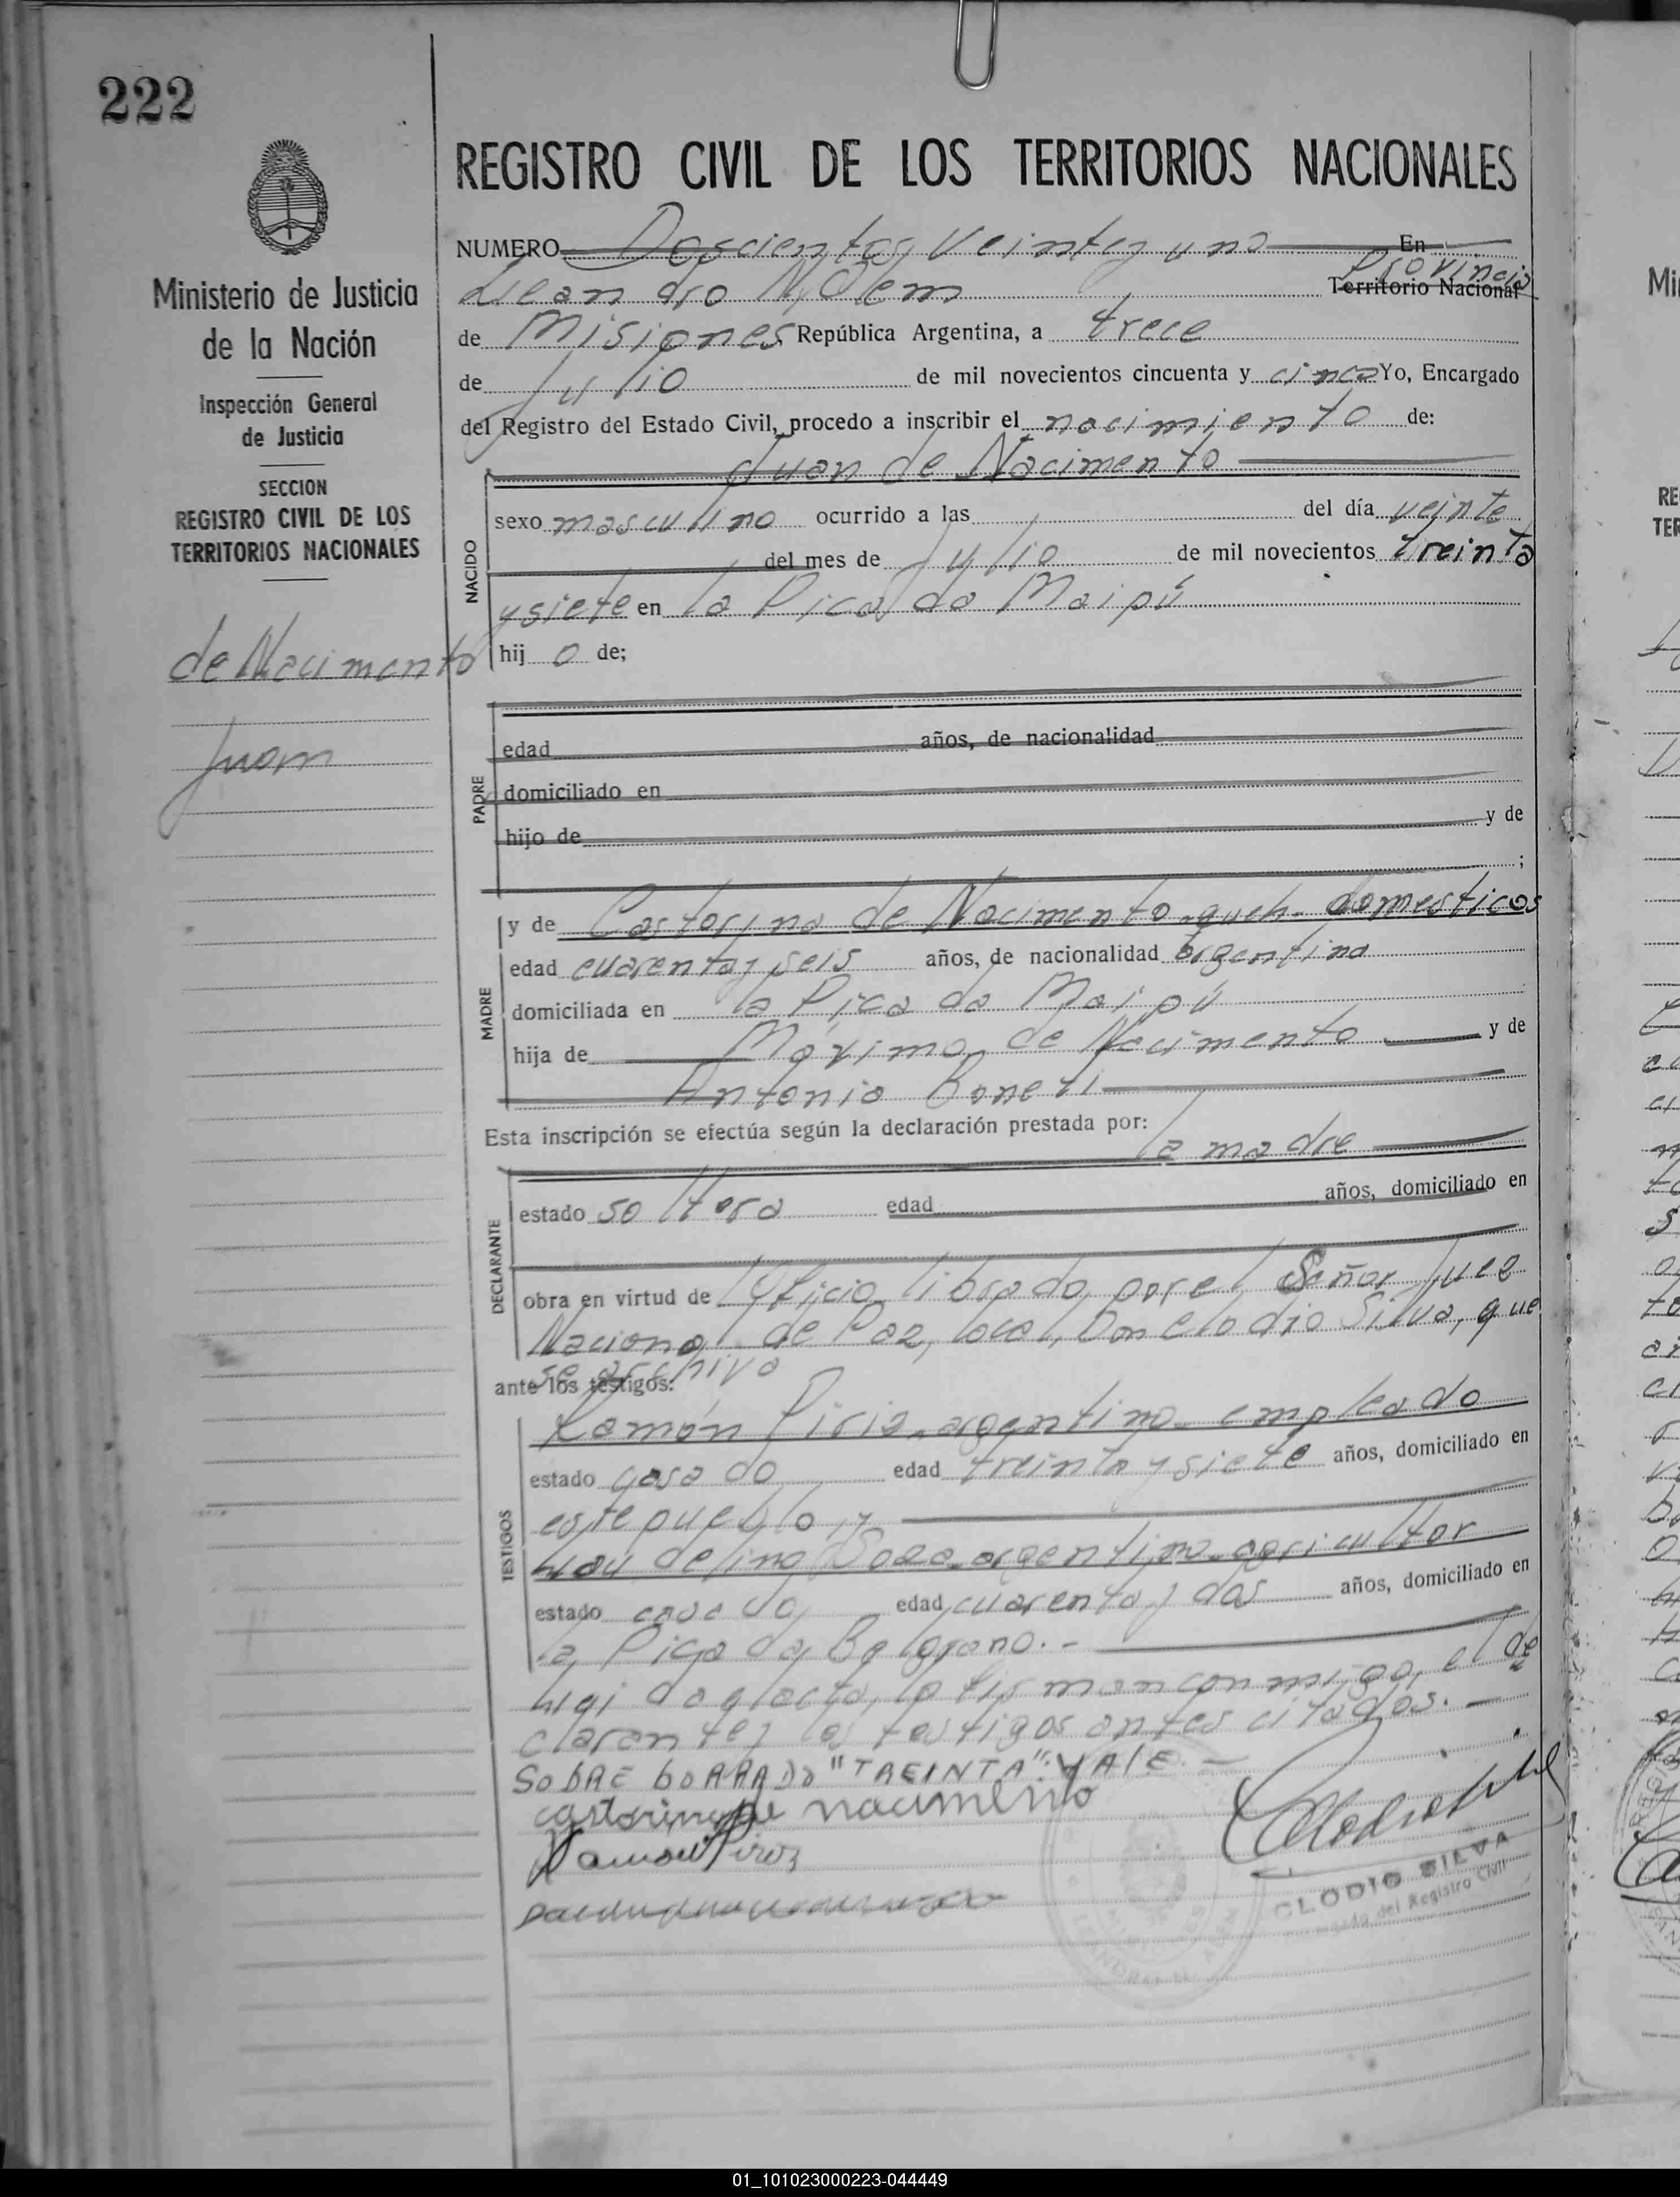 222
Ministerio de Justicia
de la Nación
Inspección General
de Justicia
SECCION
REGISTRO CIVIL DE LOS
TERRITORIOS NACIONALES
de Nacimento
Juan
REGISTRO CIVIL DE LOS TERRITORIOS NACIONALES
NUMERO Doscientos Veintey uno En
Leandro N. Alem Provincia Territorio Nacional
de Misiones República Argentina, a trece
de Julio de mil novecientos cincuenta y cinco Yo, Encargado
del Registro del Estado Civil, procedo a inscribir el nacimiento de:
Juan de Nacimento
NACIDO
sexo masculino ocurrido a las del día veinte
del mes de Julio de mil novecientos treinta
y siete en la Picada Maipú
hij o de;
PADRE
edad años, de nacionalidad
domiciliado en
hijo de y de
;
MADRE
y de Castorina de Nacimento queh. domesticos
edad cuarentay seis años, de nacionalidad argentina
domiciliada en la Picada Maipú
hija de Máximo de Nacimento y de
Antonia Boneti
Esta inscripción se efectúa según la declaración prestada por:
la madre
DECLARANTE
estado soltera edad años, domiciliado en
obra en virtud de Oficio librado por el Señor Juez
Nacional de Paz, local, Don Clodio Silva, que
se archiva
ante los testigos:
TESTIGOS
Ramón Piris argentino empleado
estado casado edad treinta y siete años, domiciliado en
este pueblo y
Laudelino argentino agricultor
estado casado edad cuarenta y dos años, domiciliado en
la Picada Belgrano.-
Leida el acta, la firman conmigo, el de
clarante y los testigos antes citados.-
SOBRE BORRADO "TREINTA": VALE.-
castorina de nacimento
Ramon Piris
CLODIO SILVA
Encargado del Registro Civil
01_101023000223-044449